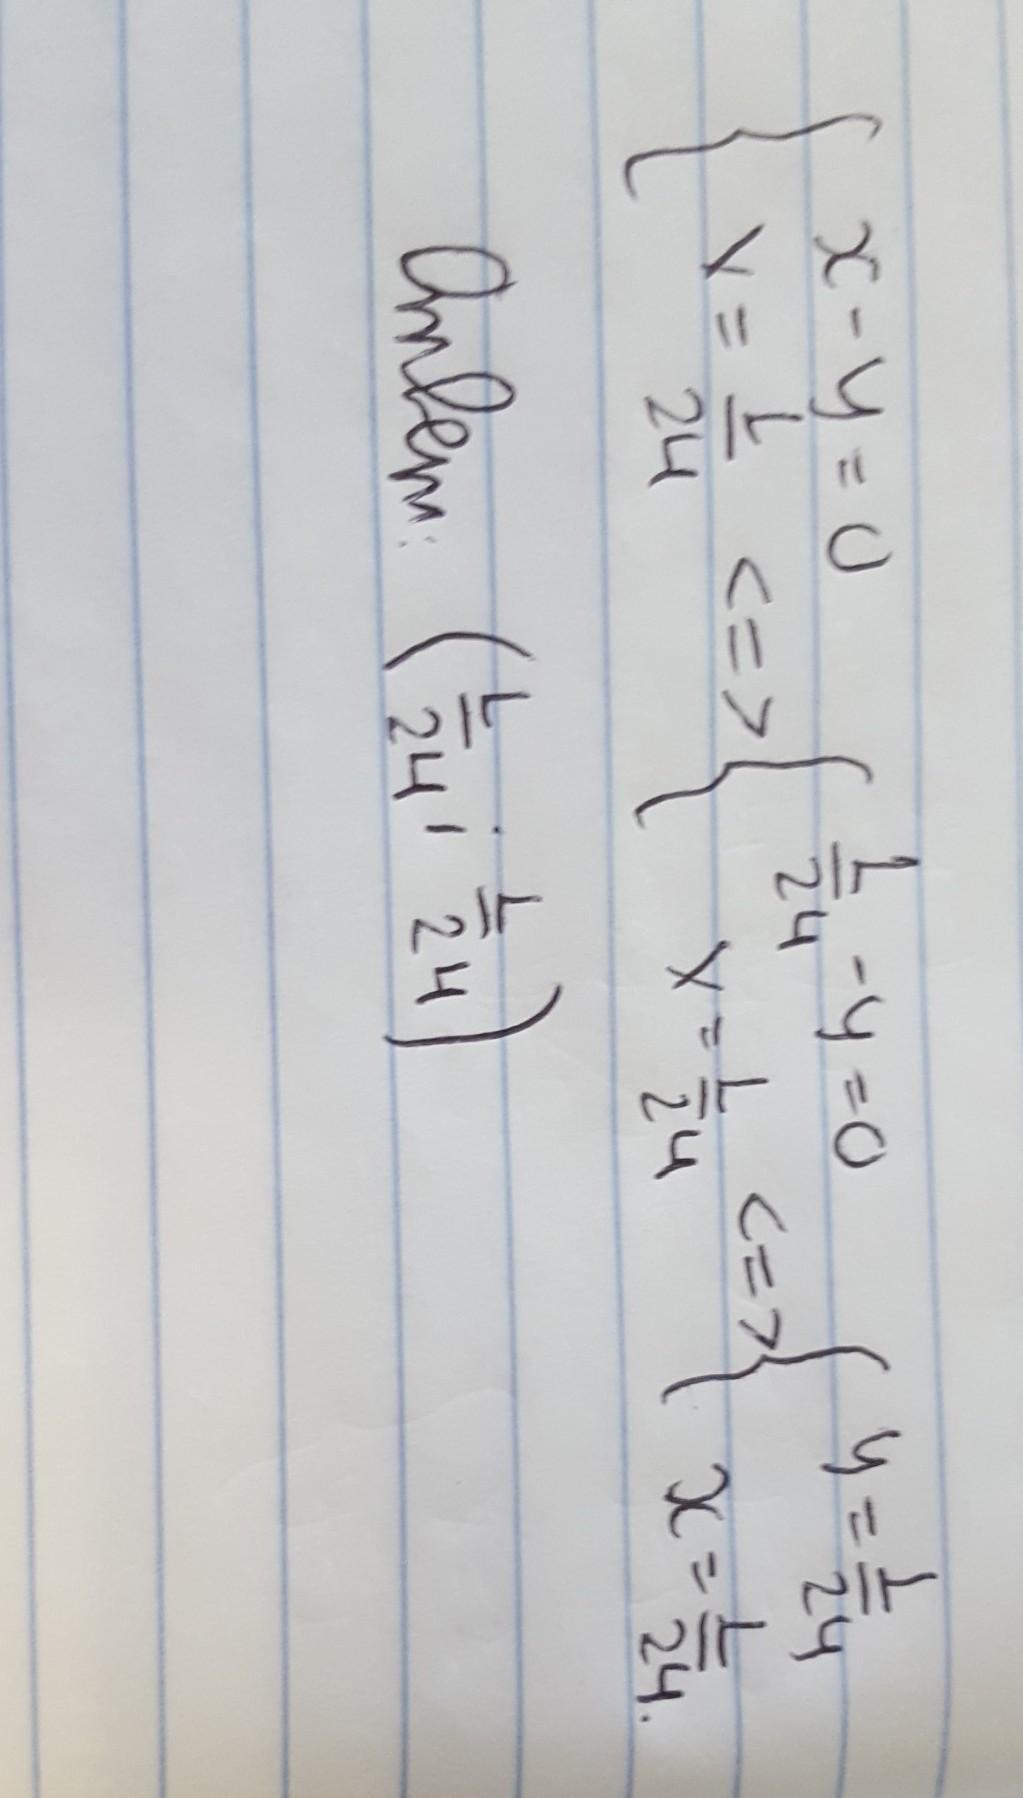 { x - y = 0
x = 1/24 <=> { 1/24 - y = 0
x = 1/24 <=> { y = 1/24
x = 1/24.
Ответ: (1/24; 1/24)